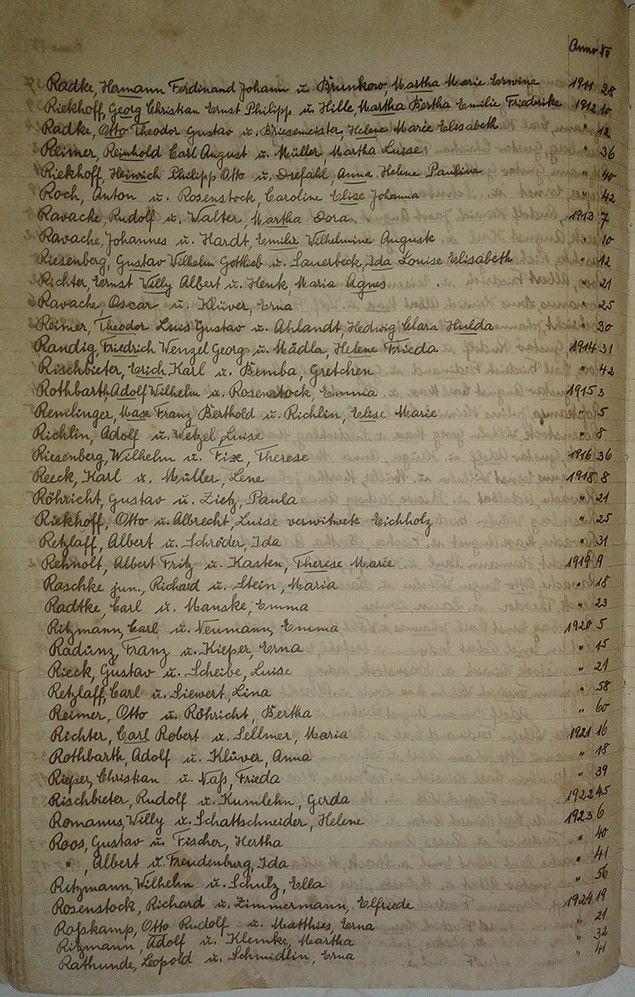 Anno №
Radtke, Hermann Ferdinand Johann u. Brunkow, Martha Marie Erwine 1911 28
Riekhoff, Georg Christian Ernst Philipp u. Hille, Martha Bertha Emilie Friedrike 1912 10
Radke, Otto Theodor Gustav u. Briesemeister, Helene Marie Elisabeth " 12
Reimer, Reinhold Carl August u. Müller Martha Luise " 36
Riekhoff, Heinrich Philipp Otto u. Drefahl, Anna Helene Pauline " 40
Roch, Anton u. Rosenstock, Caroline Elise Johanna " 42
Ravache, Rudolf u. Walter, Martha Dora 1913 7
Ravache, Johannes u. Hardt, Emilie Wilhelmine Auguste " 10
Riesenberg, Gustav Wilhelm Gottlieb u. Sauerbeck, Ida Louise Elisabeth " 12
Richter, Ernst Willy Albert u. Henk, Maria Agnes " 21
Ravache Oscar u. Klüver, Erna " 25
Reimer, Theodor Luis Gustav u. Ahlandt, Hedwig Clara Hulda " 30
Randig, Friedrich Wenzel Georg u. Mädler, Helene Frieda 1914 31
Rischbieter, Erich Karl u. Bemba, Gretchen " 42
Rothbarth, Adolf Wilhelm u. Rosenstock, Emma 1915 3
Remlinger, Max Franz Berthold u. Richlin, Elise Marie " 5
Richlin, Adolf u. Wetzel, Luise " 8
Riesenberg, Wilhelm u. Fix, Therese 1916 36
Reeck, Karl u. Müller, Lene 1918 8
Röhricht, Gustav u. Zietz, Paula " 21
Riekhoff, Otto u. Albrecht, Luise verwitwete Eichholz " 25
Retzlaff, Albert u. Schröder, Ida " 31
Rehnolt, Albert Fritz u. Kasten, Therese Marie 1919 9
Raschke jun., Richard u. Stein, Maria " 18
Radtke, Carl u. Manske, Emma " 23
Ritzmann, Carl u. Neumann, Emma 1920 5
Radünz, Franz u. Kieper, Erna " 15
Rieck, Gustav u. Scheibe, Luise " 21
Retzlaff, Carl u. Siewert, Lina " 58
Reimer, Otto u. Röhricht, Bertha " 60
Richter, Carl Robert u. Sellmer, Maria 1921 16
Rothbarth, Adolf u. Klüver, Anna " 18
Rieper, Christian u. Naß, Frieda " 39
Rischbieter, Rudolf u. Kumlehn, Gerda 1922 45
Romanus, Willy u. Schattschneider, Helene 1923 6
Roos, Gustav u. Fischer, Hertha " 40
" , Albert u. Freudenburg, Ida " 41
Ritzmann Wilhelm u. Schulz, Ella " 56
Rosenstock, Richard u. Zimmermann, Elfriede 1924 19
Roßkamp, Otto Rudolf u. Matthies, Erna " 21
Ritzmann, Adolf u. Klemke, Martha " 32
Rathunde, Leopold u. Schmidlin, Erna " 41